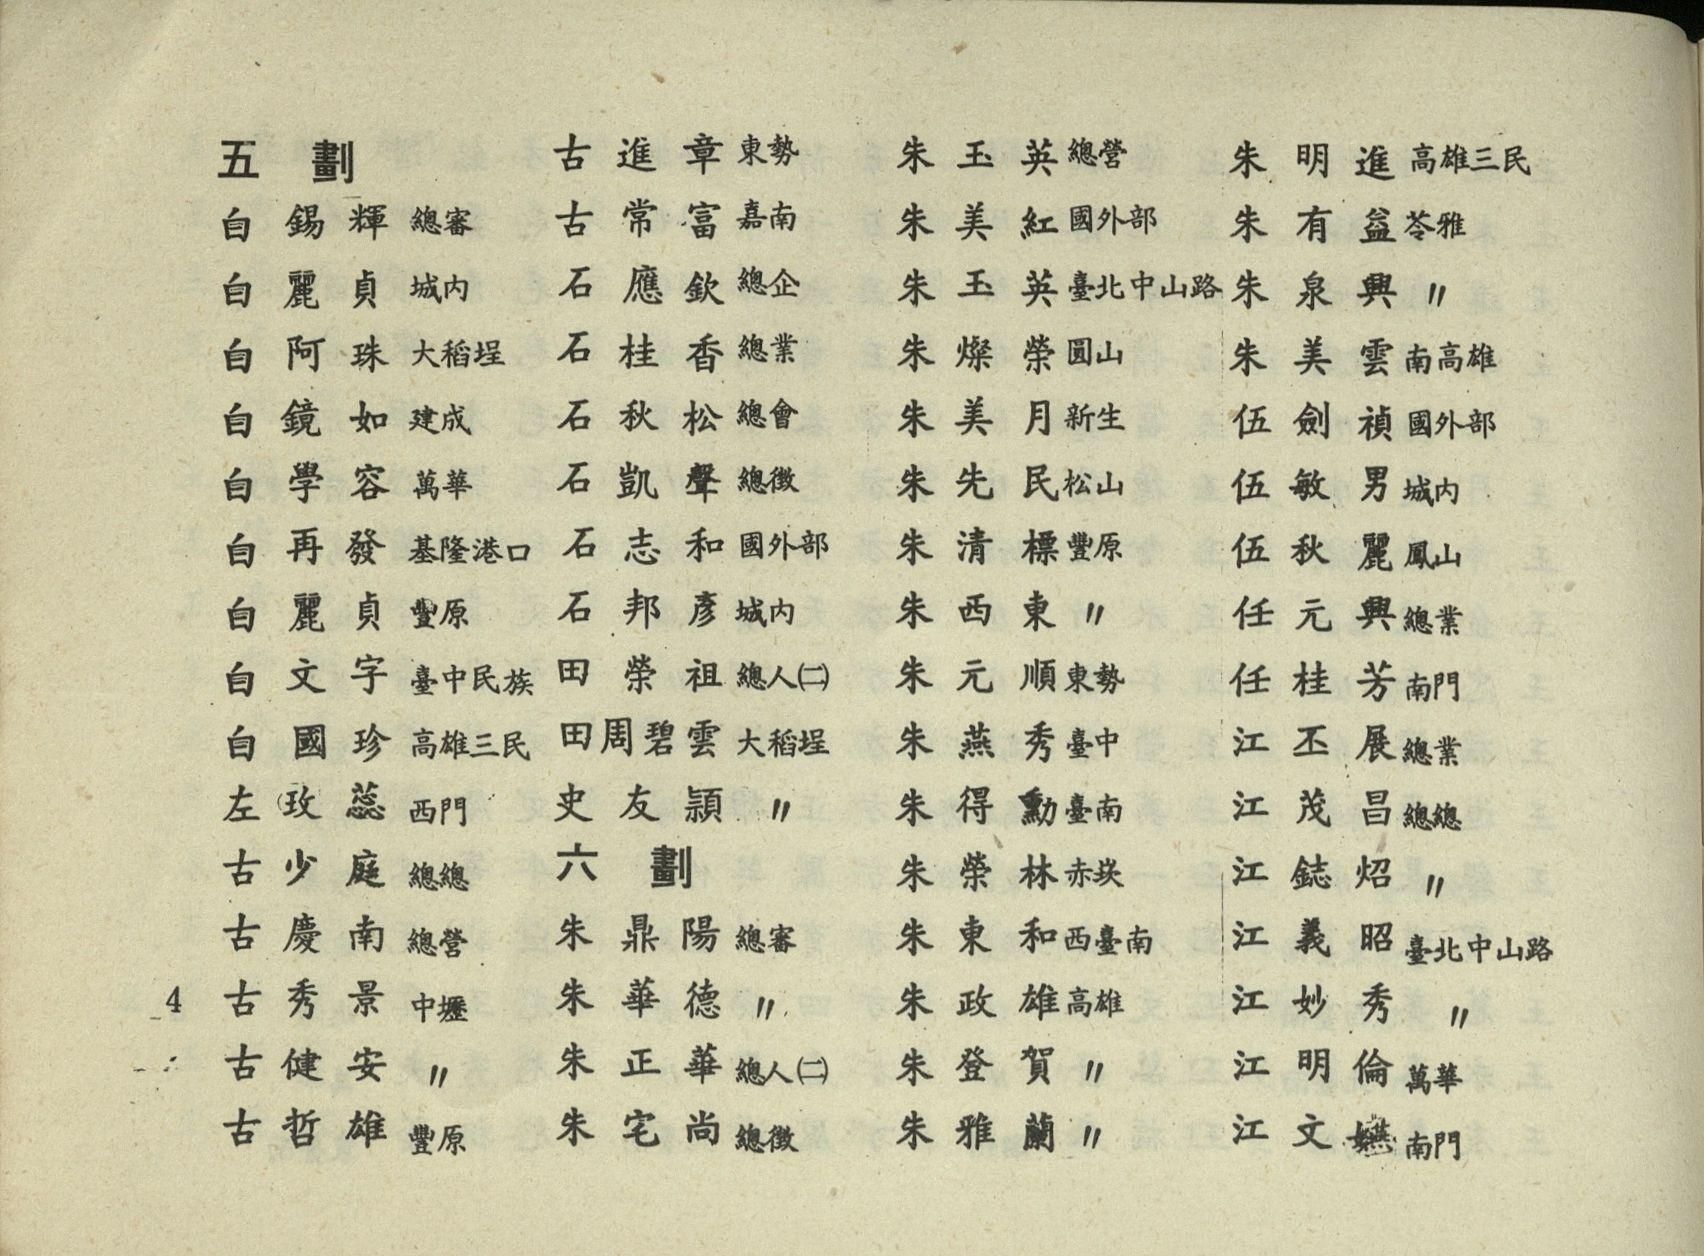 五劃
白錫輝 總審
白麗貞 城內
白阿珠 大稻埕
白鏡如 建成
白學容 萬華
白再發 基隆港口
白麗貞 豐原
白文字 臺中民族
白國珍 高雄三民
左玫蕊 西門
古少庭 總總
古慶南 總營
古秀景 中壢
古健安 〃
古哲雄 豐原
古進章 東勢
古常富 嘉南
石應欽 總企
石桂香 總業
石秋松 總會
石凱聲 總徵
石志和 國外部
石邦彥 城內
田榮祖 總人㈡
田周碧雲 大稻埕
史友頴 〃
六劃
朱鼎陽 總審
朱華德 〃
朱正華 總人㈡
朱宅尚 總徵
朱玉英 總營
朱美紅 國外部
朱玉英 臺北中山路
朱燦榮 圓山
朱美月 新生
朱先民 松山
朱清標 豐原
朱西東 〃
朱元順 東勢
朱燕秀 臺中
朱得勳 臺南
朱榮林 赤崁
朱東和 西臺南
朱政雄 高雄
朱登賀 〃
朱雅蘭 〃
朱明進 高雄三民
朱有益 苓雅
朱泉興 〃
朱美雲 南高雄
伍劍禎 國外部
伍敏男 城內
伍秋麗 鳳山
任元興 總業
任桂芳 南門
江丕展 總業
江茂昌 總總
江鋕炤 〃
江義昭 臺北中山路
江妙秀 〃
江明倫 萬華
江文 南門
4